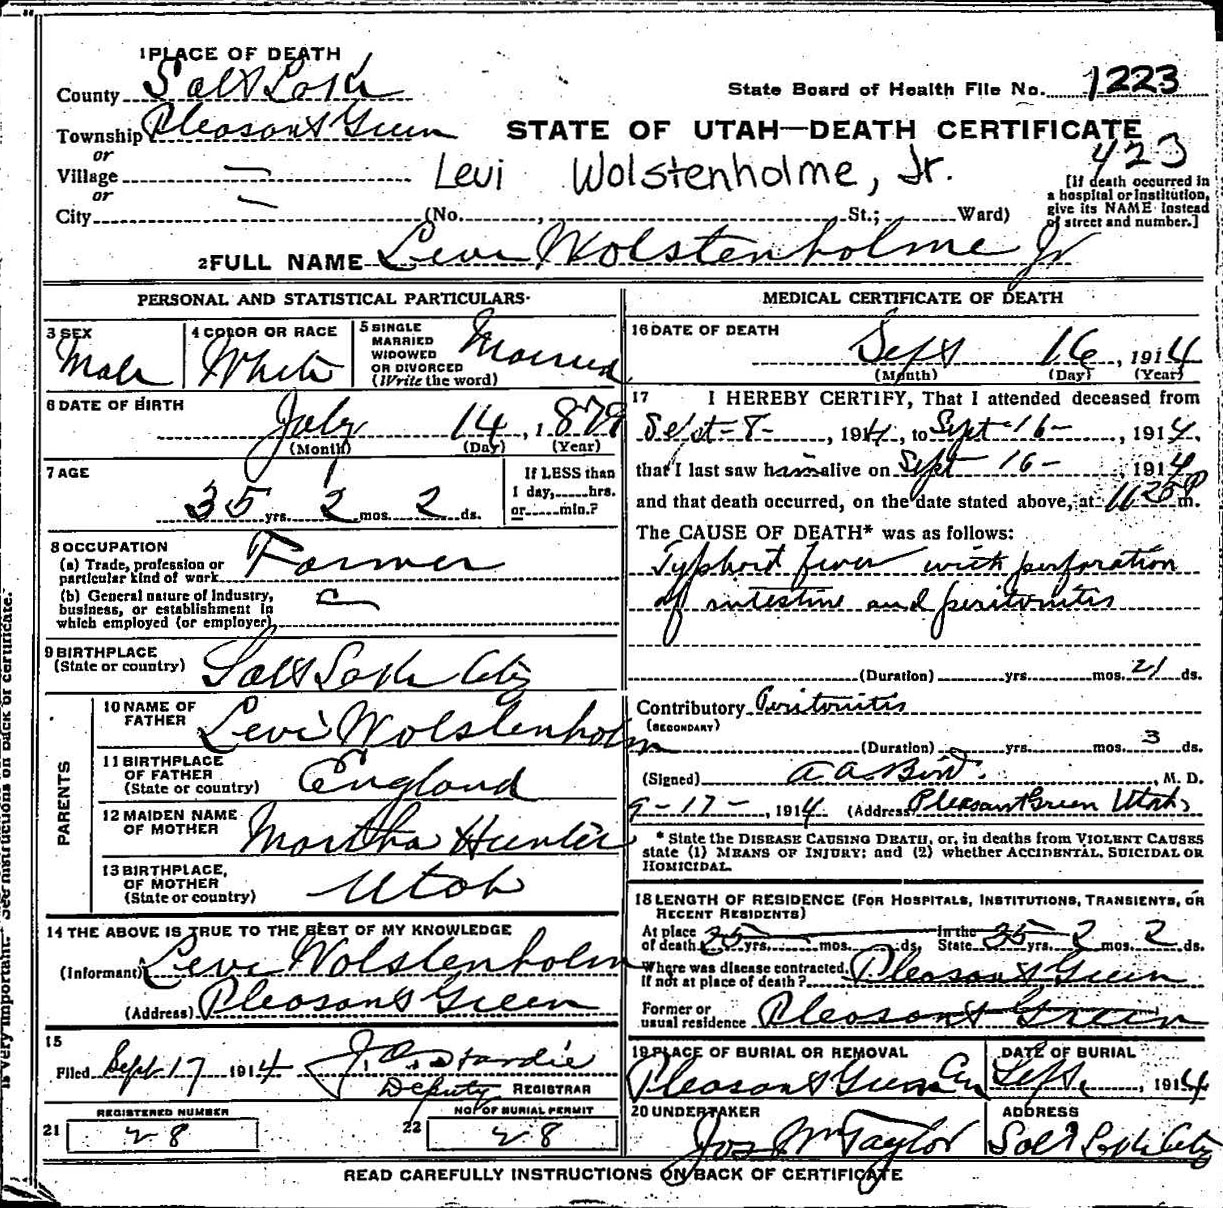 1 PLACE OF DEATH
County Salt Lake
State Board of Health File No. 1223
Township Pleasant Green
STATE OF UTAH—DEATH CERTIFICATE
423
or
Village —
Levi Wolstenholme, Jr.
[If death occurred in a hospital or institution, give its NAME instead of street and number.]
or
City — (No. , St.; Ward)
2 FULL NAME Levi Wolstenholme Jr
PERSONAL AND STATISTICAL PARTICULARS
3 SEX Male
4 COLOR OR RACE White
5 SINGLE MARRIED WIDOWED OR DIVORCED (Write the word) Married
6 DATE OF BIRTH
July 14, 1879
(Month) (Day) (Year)
7 AGE
35 yrs. 2 mos. 2 ds.
If LESS than 1 day, hrs. or min.?
8 OCCUPATION
(a) Trade, profession or particular kind of work Farmer
(b) General nature of Industry, business, or establishment in which employed (or employer)
9 BIRTHPLACE
(State or country) Salt Lake City
PARENTS
10 NAME OF FATHER Levi Wolstenholm
11 BIRTHPLACE OF FATHER (State or country) England
12 MAIDEN NAME OF MOTHER Martha Hunter
13 BIRTHPLACE, OF MOTHER (State or country) Utah
14 THE ABOVE IS TRUE TO THE BEST OF MY KNOWLEDGE
(Informant) Levi Wolstenholm
(Address) Pleasant Green
15
Filed Sept 17 1914 J. A. Hardie
Deputy REGISTRAR
REGISTERED NUMBER
21 28
NO. OF BURIAL PERMIT
22 28
MEDICAL CERTIFICATE OF DEATH
16 DATE OF DEATH
Sept 16, 1914
(Month) (Day) (Year)
17 I HEREBY CERTIFY, That I attended deceased from
Sept-8-, 1914, to Sept-16-, 1914,
that I last saw him alive on Sept 16-, 1914
and that death occurred, on the date stated above, at m.
The CAUSE OF DEATH* was as follows:
Typhoid fever with perforation
of intestine and peritonitis
(Duration) yrs. mos. 21 ds.
Contributory Peritonitis
(SECONDARY)
(Duration) yrs. mos. 3 ds.
(Signed) A A Bird. , M. D.
9-17-, 1914 (Address) Pleasant Green Utah
* State the DISEASE CAUSING DEATH, or, in deaths from VIOLENT CAUSES
state (1) MEANS OF INJURY; and (2) whether ACCIDENTAL, SUICIDAL OR
HOMICIDAL.
18 LENGTH OF RESIDENCE (FOR HOSPITALS, INSTITUTIONS, TRANSIENTS, OR
RECENT RESIDENTS)
At place of death 35 yrs. mos. ds. In the State 35 yrs. 2 mos. 2 ds.
Where was disease contracted, if not at place of death? Pleasant Green
Former or usual residence Pleasant Green
19 PLACE OF BURIAL OR REMOVAL
Pleasant Green Cem
DATE OF BURIAL
Sept, 1914
20 UNDERTAKER
Jos Wm Taylor
ADDRESS
Salt Lake City
READ CAREFULLY INSTRUCTIONS ON BACK OF CERTIFICATE
is very important. See instructions on back of certificate.